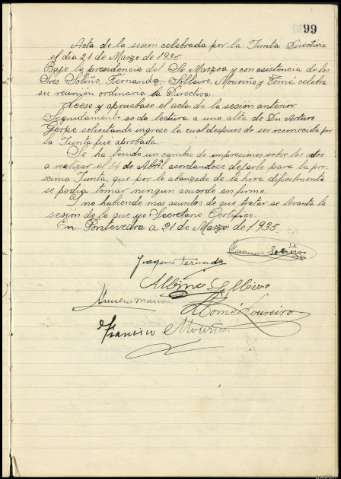 99
Acta de la sesion celebrada por la Junta Directiva
el dia 21 de Marzo de 1935.
Bajo la presidencia del Sr Marzoa y con asistencia de los
Sres Sobrino, Fernando, Silleiro, Mouriña y Tomé celebra
su reunion ordinaria la Directiva.
Leese y apruebase el acta de la sesion anterior
Seguidamente se da lectura a una alta de Dn Arturo
solicitando ingreso la cual despues de ser reconocida por
la Junta fue aprobada.
Se ha tenido un cambio de impresiones entre los
a realizar el 14 de Abril acordandose dejarlo para la pro-
xima Junta, que por lo abanzado de la hora
se podia tomar ningun acuerdo en firme.
I no habiendo mas asuntos de que tratar se levanta la
sesion de la que yo Secretario Certifico.
En Pontevedra a 21 de Marzo de 1935.
Sobrino
Joaquin Fernando
Albino Silleiro
Marzoa
Tomé Loureiro
Francisco Mouriña